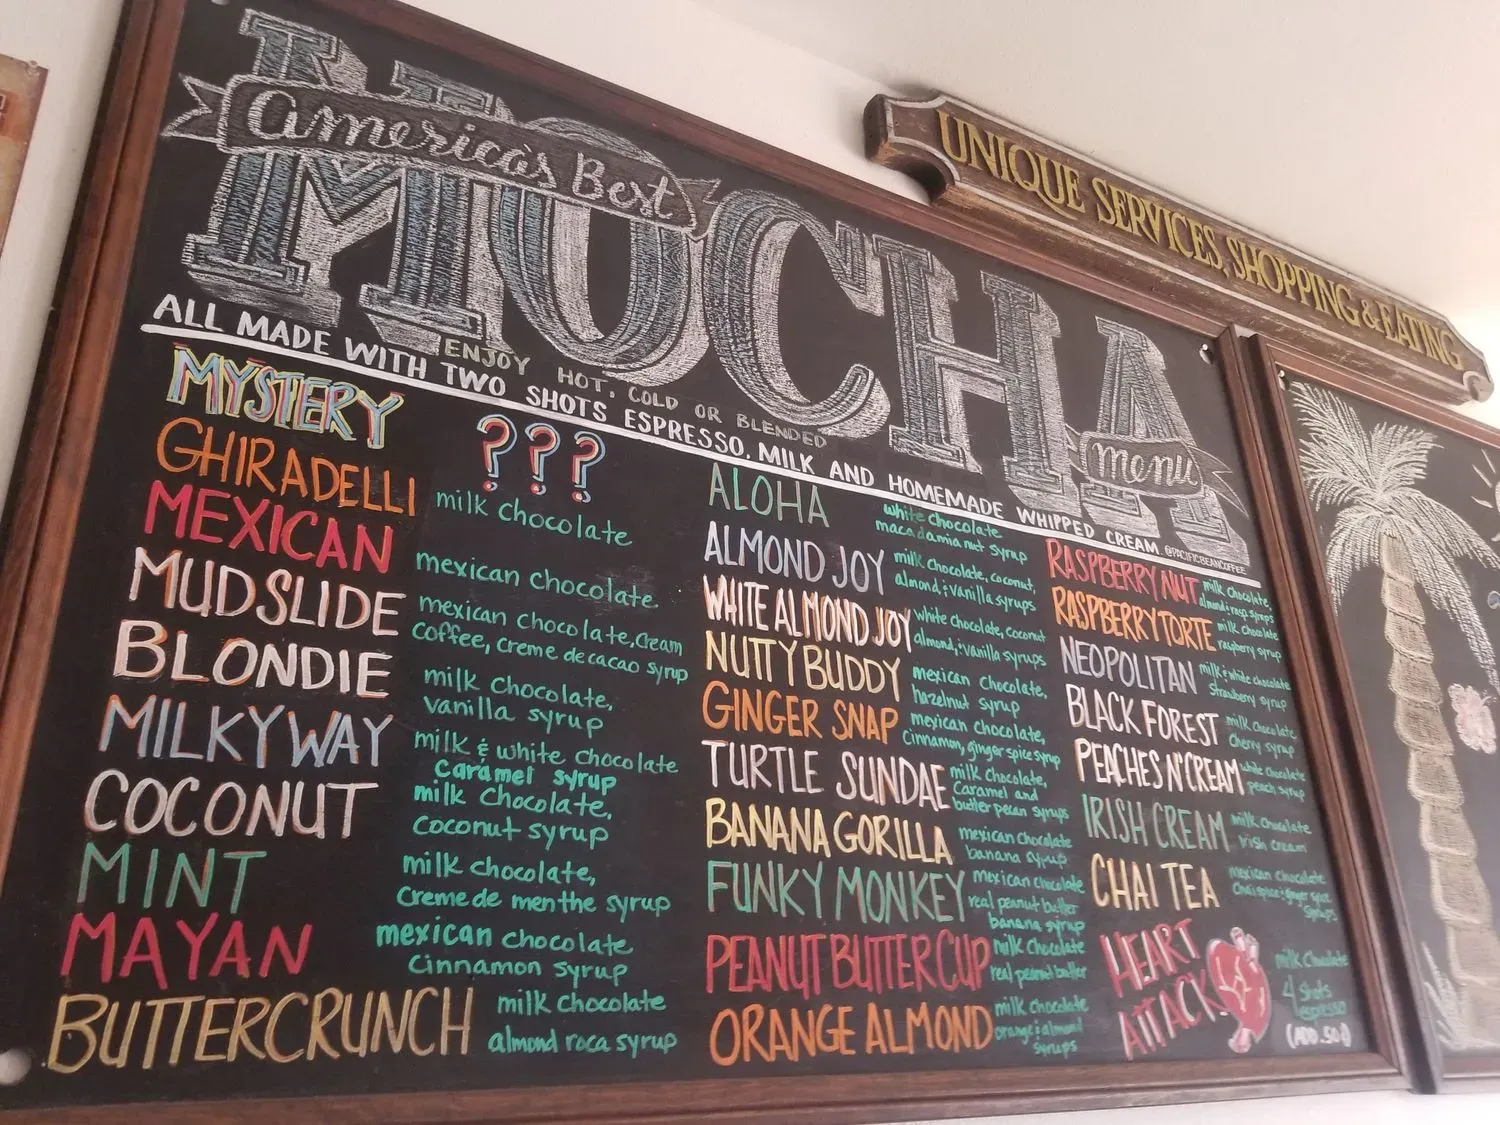 America's Best
MOCHA
menu
ENJOY HOT, COLD OR BLENDED
ALL MADE WITH TWO SHOTS ESPRESSO, MILK AND HOMEMADE WHIPPED CREAM. @PACIFICBEANCOFFEE
MYSTERY ???
GHIRADELLI milk chocolate
MEXICAN mexican chocolate
MUDSLIDE mexican chocolate, cream
coffee, creme de cacao syrup
BLONDIE milk chocolate,
vanilla syrup
MILKY WAY milk & white chocolate
caramel syrup
COCONUT milk chocolate,
coconut syrup
MINT milk chocolate,
Creme de menthe syrup
MAYAN mexican chocolate
cinnamon syrup
BUTTERCRUNCH milk chocolate
almond roca syrup
ALOHA white chocolate
macadamia nut syrup
ALMOND JOY milk chocolate, coconut,
almond, & vanilla syrups
WHITE ALMOND JOY white chocolate, coconut
almond, & vanilla syrups
NUTTY BUDDY mexican chocolate,
hazelnut syrup
GINGER SNAP mexican chocolate,
Cinnamon, ginger spice syrup
TURTLE SUNDAE milk chocolate,
Caramel and
butter pecan syrups
BANANA GORILLA mexican chocolate
banana syrup
FUNKY MONKEY mexican chocolate
real peanut butter
banana syrup
PEANUT BUTTER CUP milk chocolate
real peanut butter
ORANGE ALMOND milk chocolate
orange & almond
syrups
RASPBERRY NUT milk chocolate,
almond & rasp syrups
RASPBERRY TORTE milk chocolate
raspberry syrup
NEOPOLITAN milk & white chocolate
strawberry syrup
BLACK FOREST milk chocolate
Cherry syrup
PEACHES N' CREAM white chocolate
peach syrup
IRISH CREAM milk chocolate
irish cream
CHAI TEA mexican chocolate
Chai spice & ginger spice
syrups
HEART
ATTACK milk chocolate
4 shots
espresso
(ADD .50¢)
UNIQUE SERVICES, SHOPPING & EATING